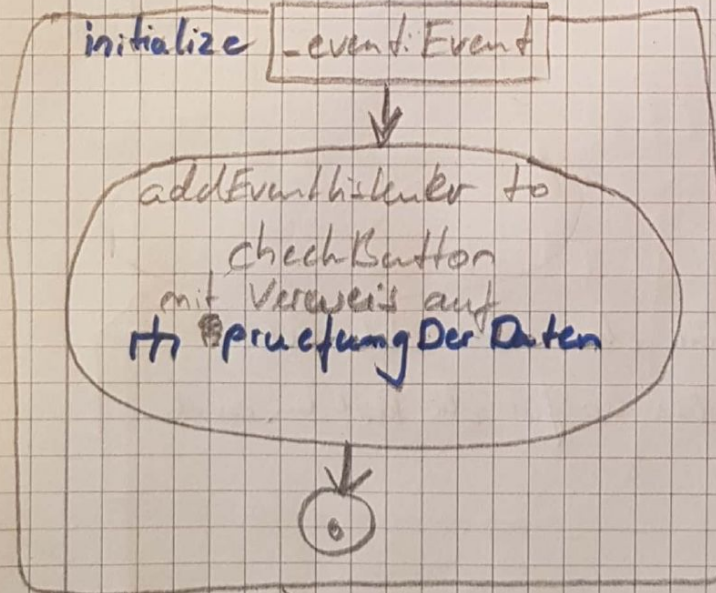 initialize _event: Event
addEventListener to
checkButton
mit Verweis auf
pruefungDerDaten